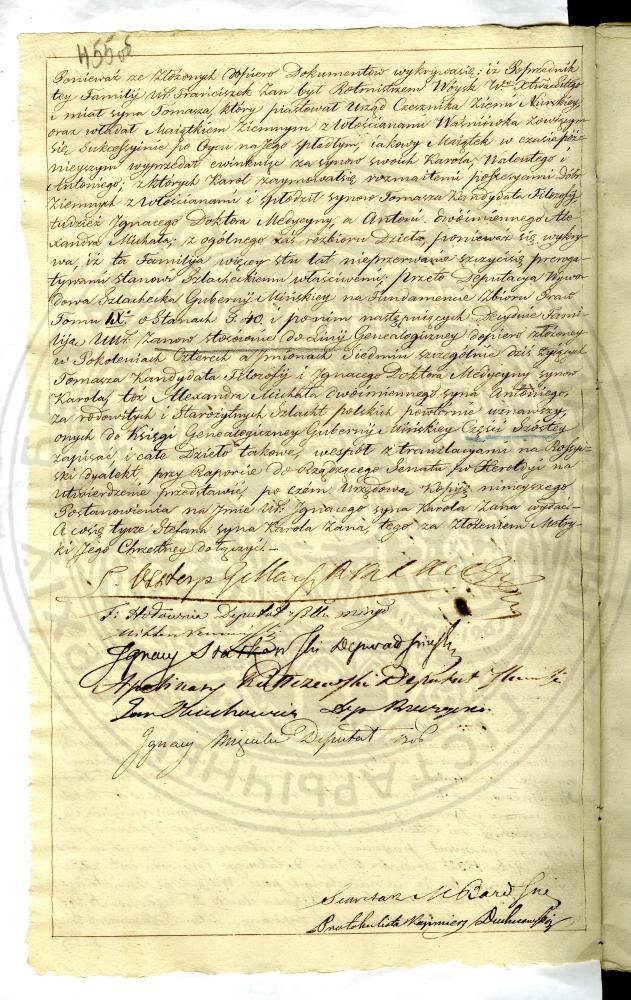 455 об
Ponieważ ze złożonych dopiero Dokumentow wykrywasię; iż Poprzednik
tey Familij Ur. Franciszek Zan był Rotmistrzem Woysk
i miał syna Tomasza, ktory piastował Urząd Czesnika Ziemi Nurskiey,
oraz władał Maiątkiem Ziemnym z Włościanami Waśniowka zowiącym
się, Sukcessyinie po Oycu na Jego spadłym, iakowy Maiątek w czasie póź-
nieyszym wyprzedał ewinkuiąc za synow swoich Karola, Walentego i
Antoniego; z których Karol zaymowałsię rozmaitemi possesyami dóbr
Ziemnych z Włościanami i spłodził synow Tomasza Kandydata Filozofij
tudzież Ignacego Doktora Medycyny, a Antoni dwóimiennego Ale-
xandra Michała; z ogólnego zaś rozbioru Dzieła, ponieważ się wykry-
wa, iż ta Familija więcey stu lat nieprzerwanie szczycisię preroga-
tywami stanowi Szlacheckiemu właściwemi; przeto Deputacya Wywo-
dowa Szlachecka Gubernij Mińskiey na Fundamencie Zbioru Praw
Tomu IX° o Stanach §. 40. i ponim następuiących Decyduie Fami-
liją Zanow stosownie do Linij Genealogiczney dopiero złożoney
w Pokoleniach Czterech a Imionach Siedmiu szczególnie dziś żyiących
Tomasza Kandydata Filozofij i Ignacego Doktora Medycyny synow
Karola, toż Alexandra Michała dwóimiennego syna Antoniego,
za rodowitych i Starożytnych Szlacht polskich powtornie uznawszy,
onych do Księgi Genealogiczney Gubernij Mińskiey Części Szóstey
zapisać i całe Dzieło takowe, wespół z translacyami na Rossyi-
ski dyalekt, przy Raporcie do Rządzącego Senatu po Heroldyi na
utwierdzenie przedstawić, po czém Urzędową Kopiją ninieyszego
Postanowienia na Jmie Ur. Ignacego syna Karola Zana wydać.
A cosię tycze Stefana syna Karola Zana, tego za złożeniem Metry-
ki Jego Chrzestney dołączyć. —
Hołownia Deputat
Ignacy Deputat
Apolinary Deputat
Jan
Ignacy Deputat
Protokulista Kazimierz